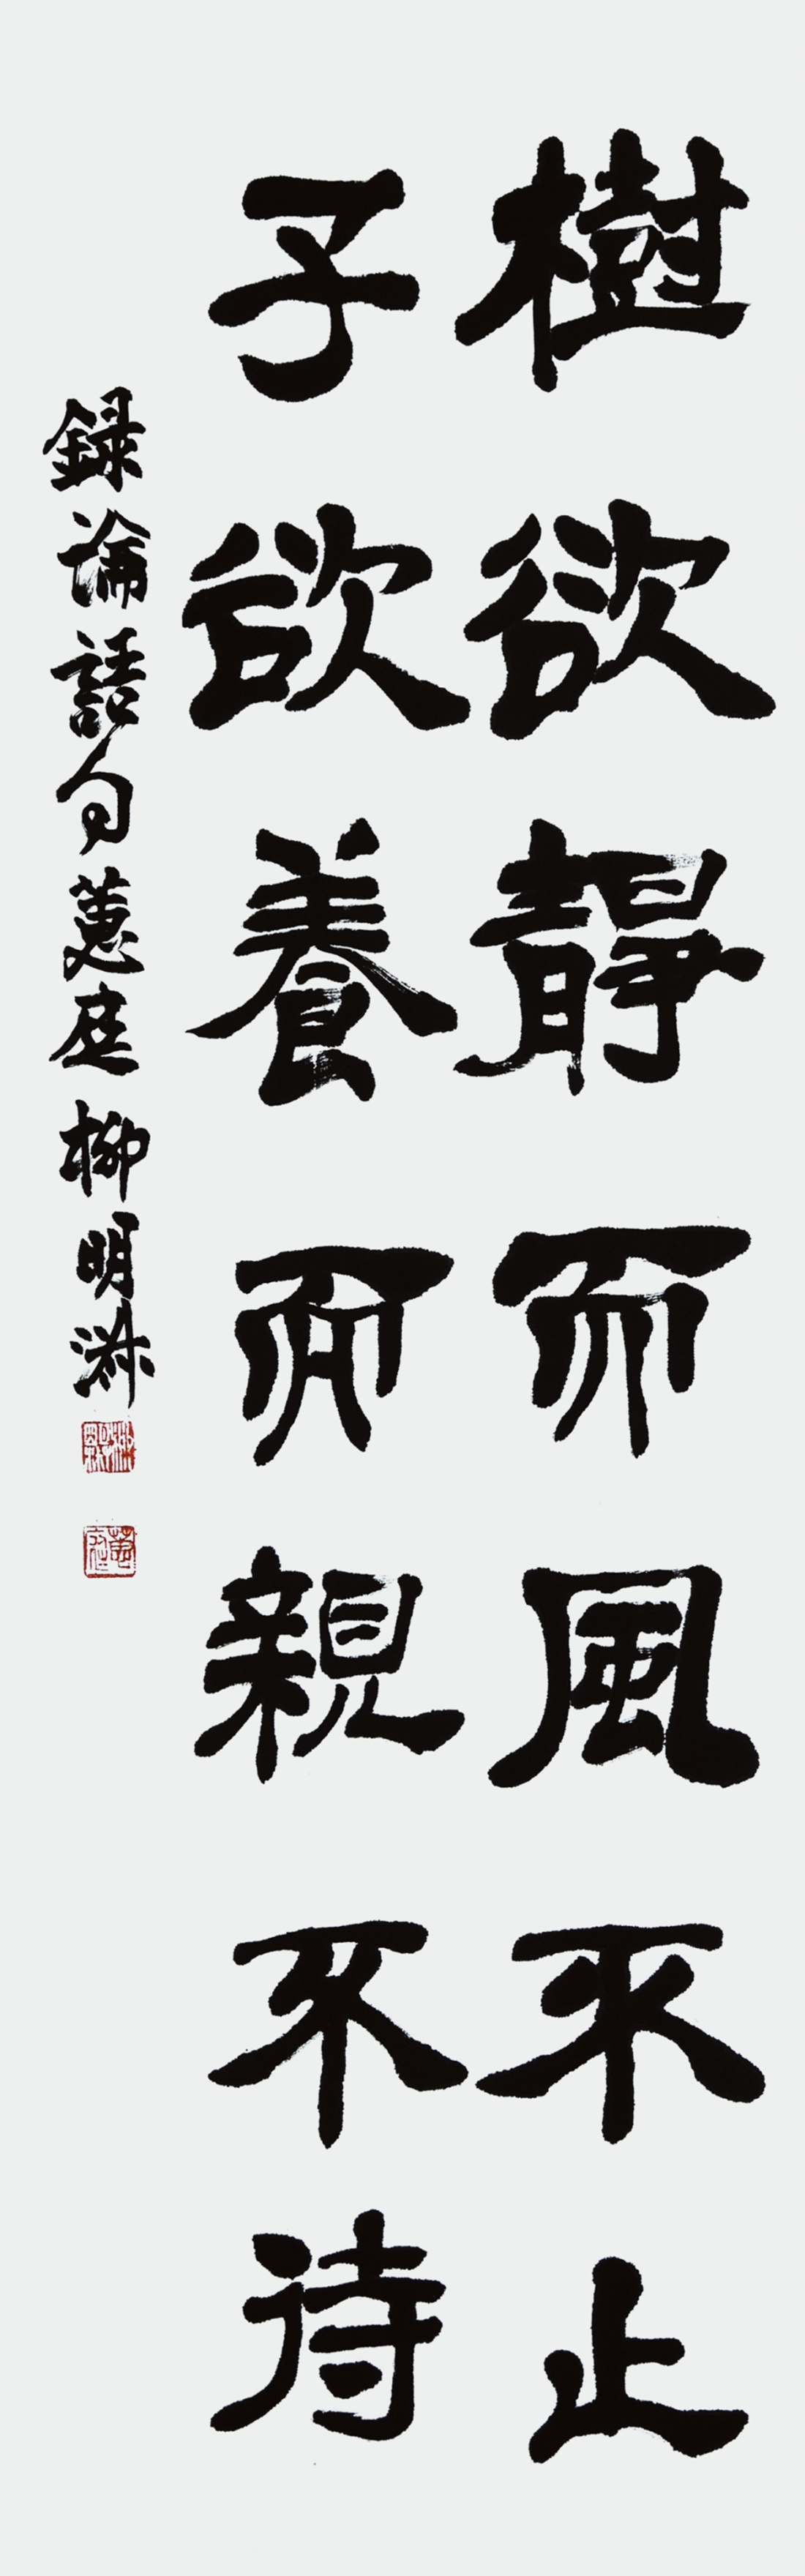 樹欲靜而風不止
子欲養而親不待
錄論語句蕙庭柳明淋